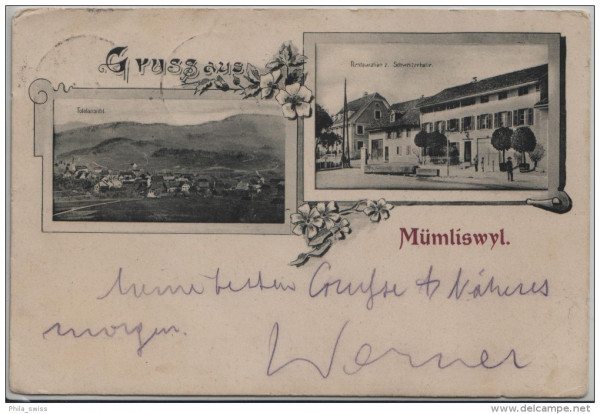 Gruss aus
Totalansicht
Restauration z. Schweizerhalle.
Mümliswyl.
meine besten Grüsse & Näheres
morgen.
Werner
Phila_swiss
©delcampe.net